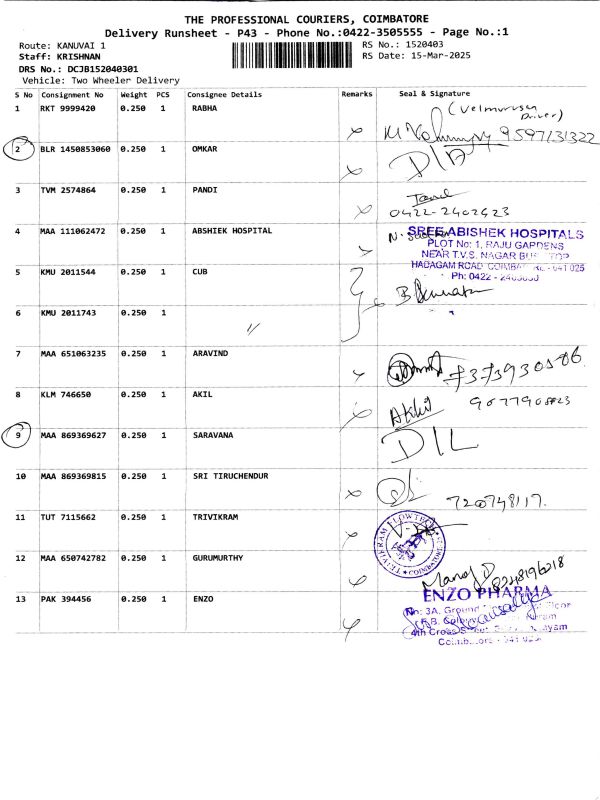 THE PROFESSIONAL COURIERS, COIMBATORE
Delivery Runsheet - P43 - Phone No.:0422-3505555 - Page No.:1
Route: KANUVAI 1
RS No.: 1520403
Staff: KRISHNAN
RS Date: 15-Mar-2025
DRS No.: DCJB152040301
Vehicle: Two Wheeler Delivery
S No Consignment No Weight PCS Consignee Details Remarks Seal & Signature
1 RKT 9999420 0.250 1 RABHA
(Velmurusu
Driver)
9597131322
2 BLR 1450853060 0.250 1 OMKAR
3 TVM 2574864 0.250 1 PANDI
0422-2402423
4 MAA 111062472 0.250 1 ABSHIEK HOSPITAL
SREE ABISHEK HOSPITALS
PLOT No: 1, RAJU GARDENS
NEAR T.V.S. NAGAR BUS STOP
5 KMU 2011544 0.250 1 CUB
Ph: 0422 -
6 KMU 2011743 0.250 1
〃
7 MAA 651063235 0.250 1 ARAVIND
8 KLM 746650 0.250 1 AKIL
Akhil
9 MAA 869369627 0.250 1 SARAVANA
D/L
10 MAA 869369815 0.250 1 SRI TIRUCHENDUR
11 TUT 7115662 0.250 1 TRIVIKRAM
12 MAA 650742782 0.250 1 GURUMURTHY
Manoj D
13 PAK 394456 0.250 1 ENZO
ENZO PHARMA
No: 3A, Ground
4th Cross